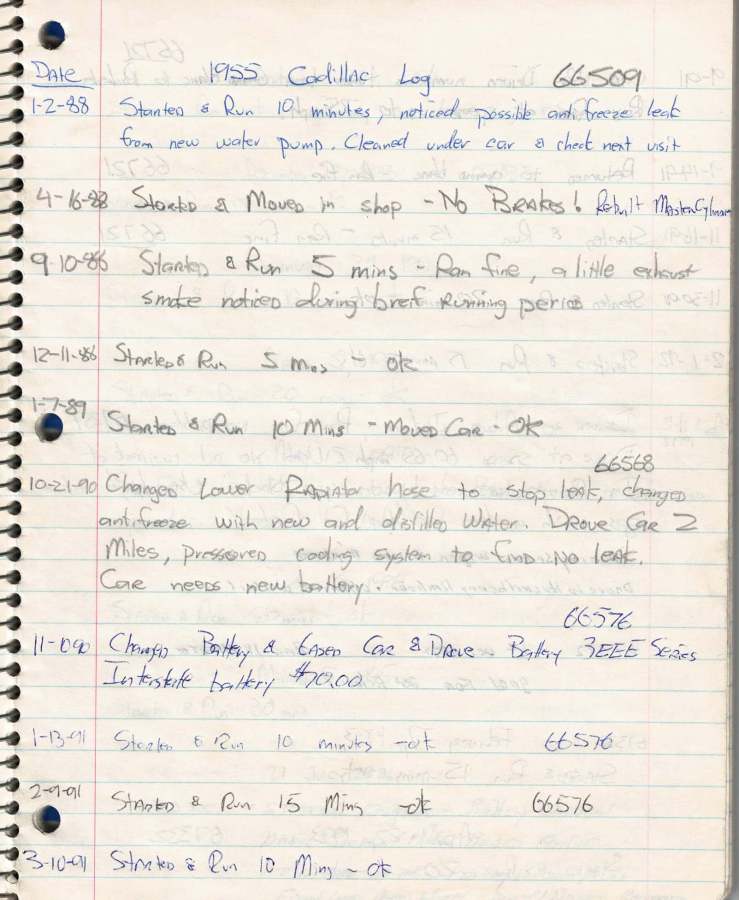 Date 1955 Cadillac Log 66509
1-2-88 Started & Run 10 minutes, noticed possible antifreeze leak
from new water pump. Cleaned under car & check next visit
4-16-88 Started & Moved in shop - No Brakes! Rebuilt Master Cylinder
9-10-86 Started & Run 5 mins - Ran fine, a little exhaust
smoke noticed during breif running period
12-11-86 Started & Run 5 mins - ok
1-7-89
Started & Run 10 Mins - Moved Car - OK
66568
10-21-90 Changed Lower Radiator hose to stop leak, changed
antifreeze with new and distilled Water. Drove Car 2
Miles, pressured cooling system to find No leak.
Car needs new battery.
66576
11-10-90 Changed Battery & Gased Car & Drove Battery 3EEE Series
Interstate battery $70.00
1-13-91 Started & Run 10 minutes - ok 66576
2-9-91 Started & Run 15 Mins - ok 66576
3-10-91 Started & Run 10 Mins - ok